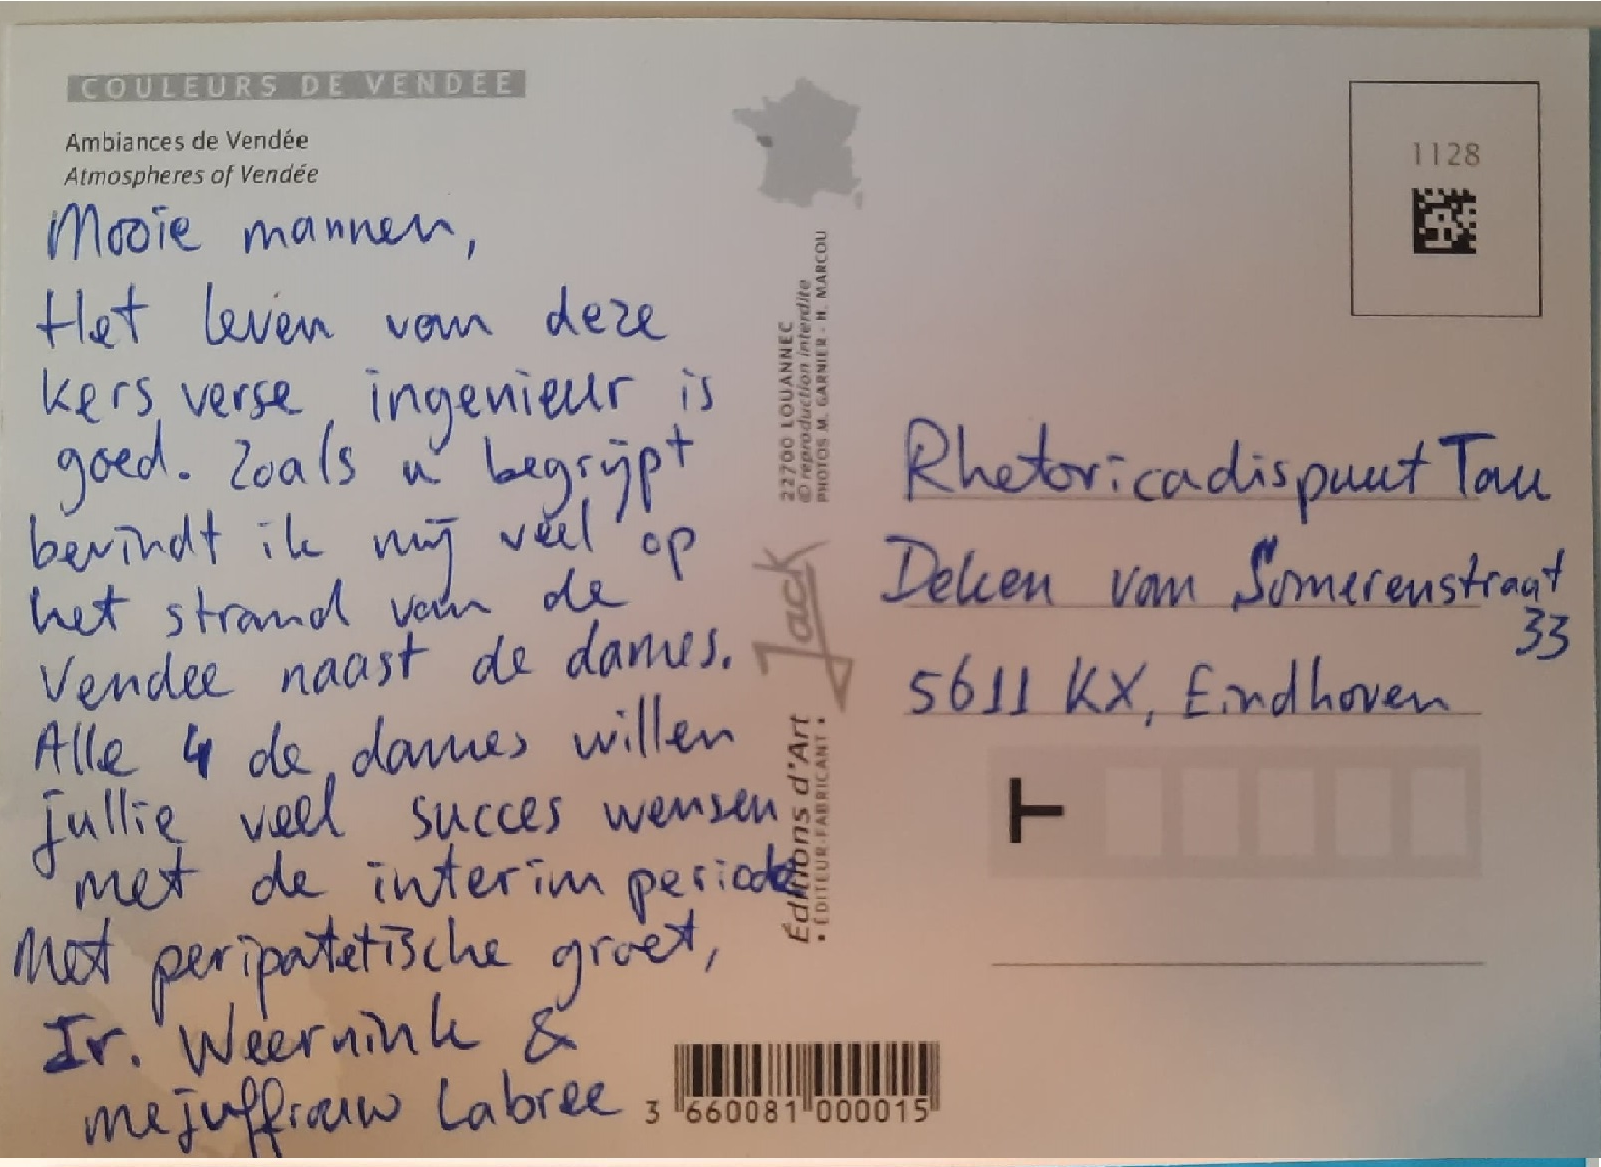 COULEURS DE VENDÉE
Ambiances de Vendée
Atmospheres of Vendée
Mooie mannen,
Het leven van deze
kers verse ingenieur is
goed. Zoals u begrijpt
bevindt ik mij veel op
het strand van de
Vendee naast de dames.
Alle 4 de dames willen
jullie veel succes wensen
met de interim periode
Met peripatetische groet,
Ir. Weernink &
mejuffrouw Labree
22700 LOUANNEC
© reproduction interdite
PHOTOS M. GARNIER - H. MARCOU
Jack
Éditions d'Art
• ÉDITEUR-FABRICANT •
1128
Rhetoricadispuut Tau
Deken van Somerenstraat
33
5611 KX, Eindhoven
T
3 660081 000015